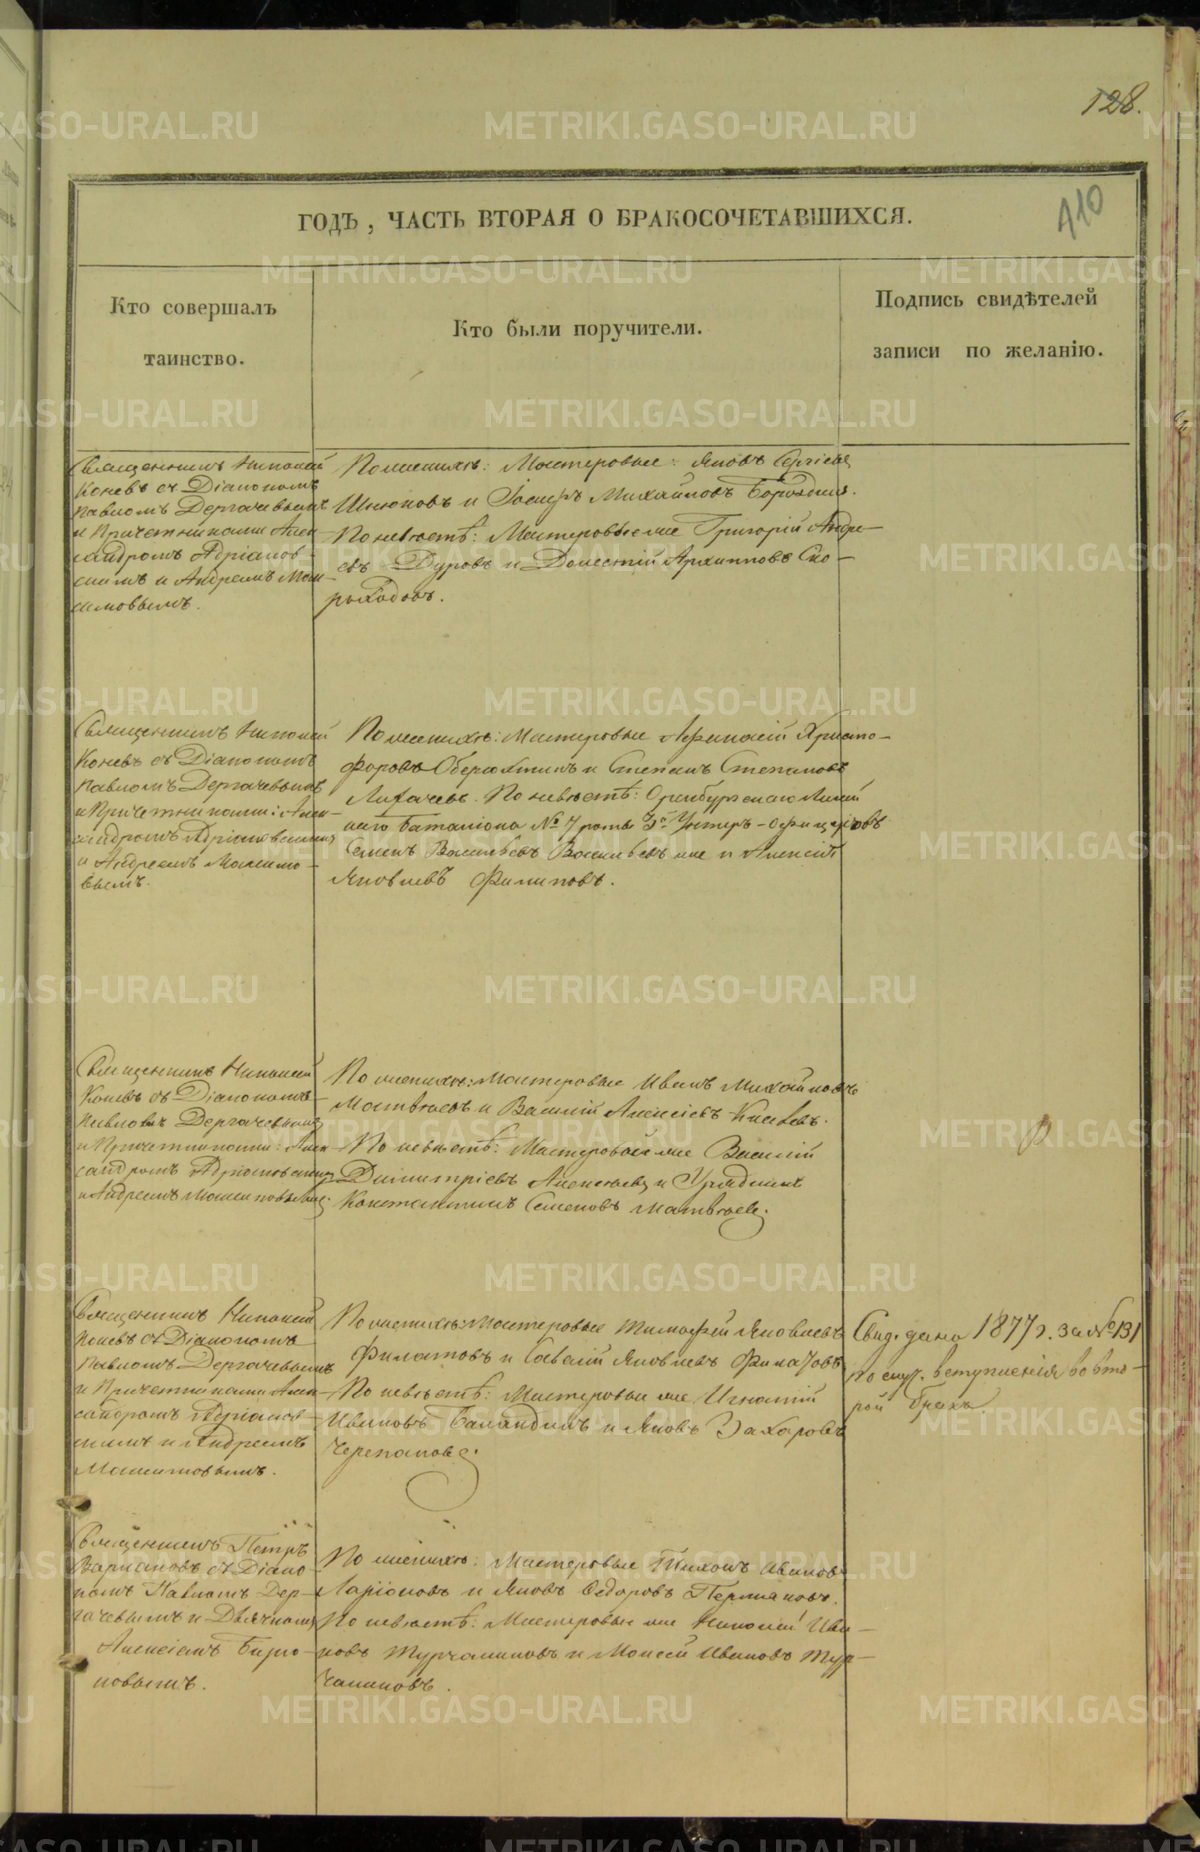 128.
410
ГОДЪ, ЧАСТЬ ВТОРАЯ О БРАКОСОЧЕТАВШИХСЯ.
Кто совершалъ
таинство.
Кто были поручители.
Подпись свидѣтелей
записи по желанію.
Священникъ Николай
Коневъ съ Діакономъ
Павломъ Дергачевымъ
и Причетниками Алек-
сандромъ Адріанов-
скимъ и Андреемъ Мак-
симовымъ.
По женихѣ: Мастеровые: Яковъ Сергіевъ
и Михайловъ Бороздинъ.
По невѣстѣ: Мастеровые же Григорій Андре-
евъ Дуровъ и Архипповъ Ско-
рыходовъ.
Священникъ Николай
Коневъ съ Діакономъ
Павломъ Дергачевымъ
и Причетниками: Алек-
сандромъ Адріановскимъ
и Андреемъ Максимо-
вымъ.
По женихѣ: Мастеровые Афанасій Христо-
форовъ и Степанъ Степановъ
Лихачевъ. По невѣстѣ: Оренбургскаго Линей
наго баталіона № 7 роты Унтеръ-Офицеровъ
Семенъ Васильевъ Васильевъ же и Алексѣй
Яковлевъ Филиповъ.
Священникъ Николай
Коневъ съ Діакономъ
Павломъ Дергачевымъ
и Причетниками: Алек-
сандромъ Адріановскимъ
и Андреемъ Максимовымъ.
По женихѣ: Мастеровые Иванъ Михайловъ
Матвѣевъ и Василій Алексѣевъ
По невѣстѣ: Мастеровой же Василій
Димитріевъ Алексѣевъ и Урядникъ
Константинъ Семеновъ Матвѣевъ.
Священникъ Николай
Коневъ съ Діакономъ
Павломъ Дергачевымъ
и Причетниками Алек-
сандромъ Адріанов-
скимъ и Андреемъ
Максимовымъ.
По женихѣ: Мастеровые Тимофей Яковлевъ
Филатовъ и Савелій Яковлевъ Филатовъ
По невѣстѣ: Мастеровые же Игнатій
Ивановъ Баландинъ и Яковъ Захаровъ
Черепановъ.
Свид. дано 1877 г. за № 131
по случ. вступленія во вто-
рой бракъ
Священникъ Петръ
съ Діако-
номъ Павломъ Дер-
гачевымъ и Дьячкомъ
Алексіемъ Бирю-
ковымъ.
По женихѣ: Мастеровые Тихонъ Ивановъ
Ларіоновъ и Яковъ Ѳедоровъ Пермяковъ.
По невѣстѣ: Мастеровые же Николай Ива-
новъ Турчаниновъ и Моисей Ивановъ Тур-
чаниновъ.
METRIKI.GASO-URAL.RU